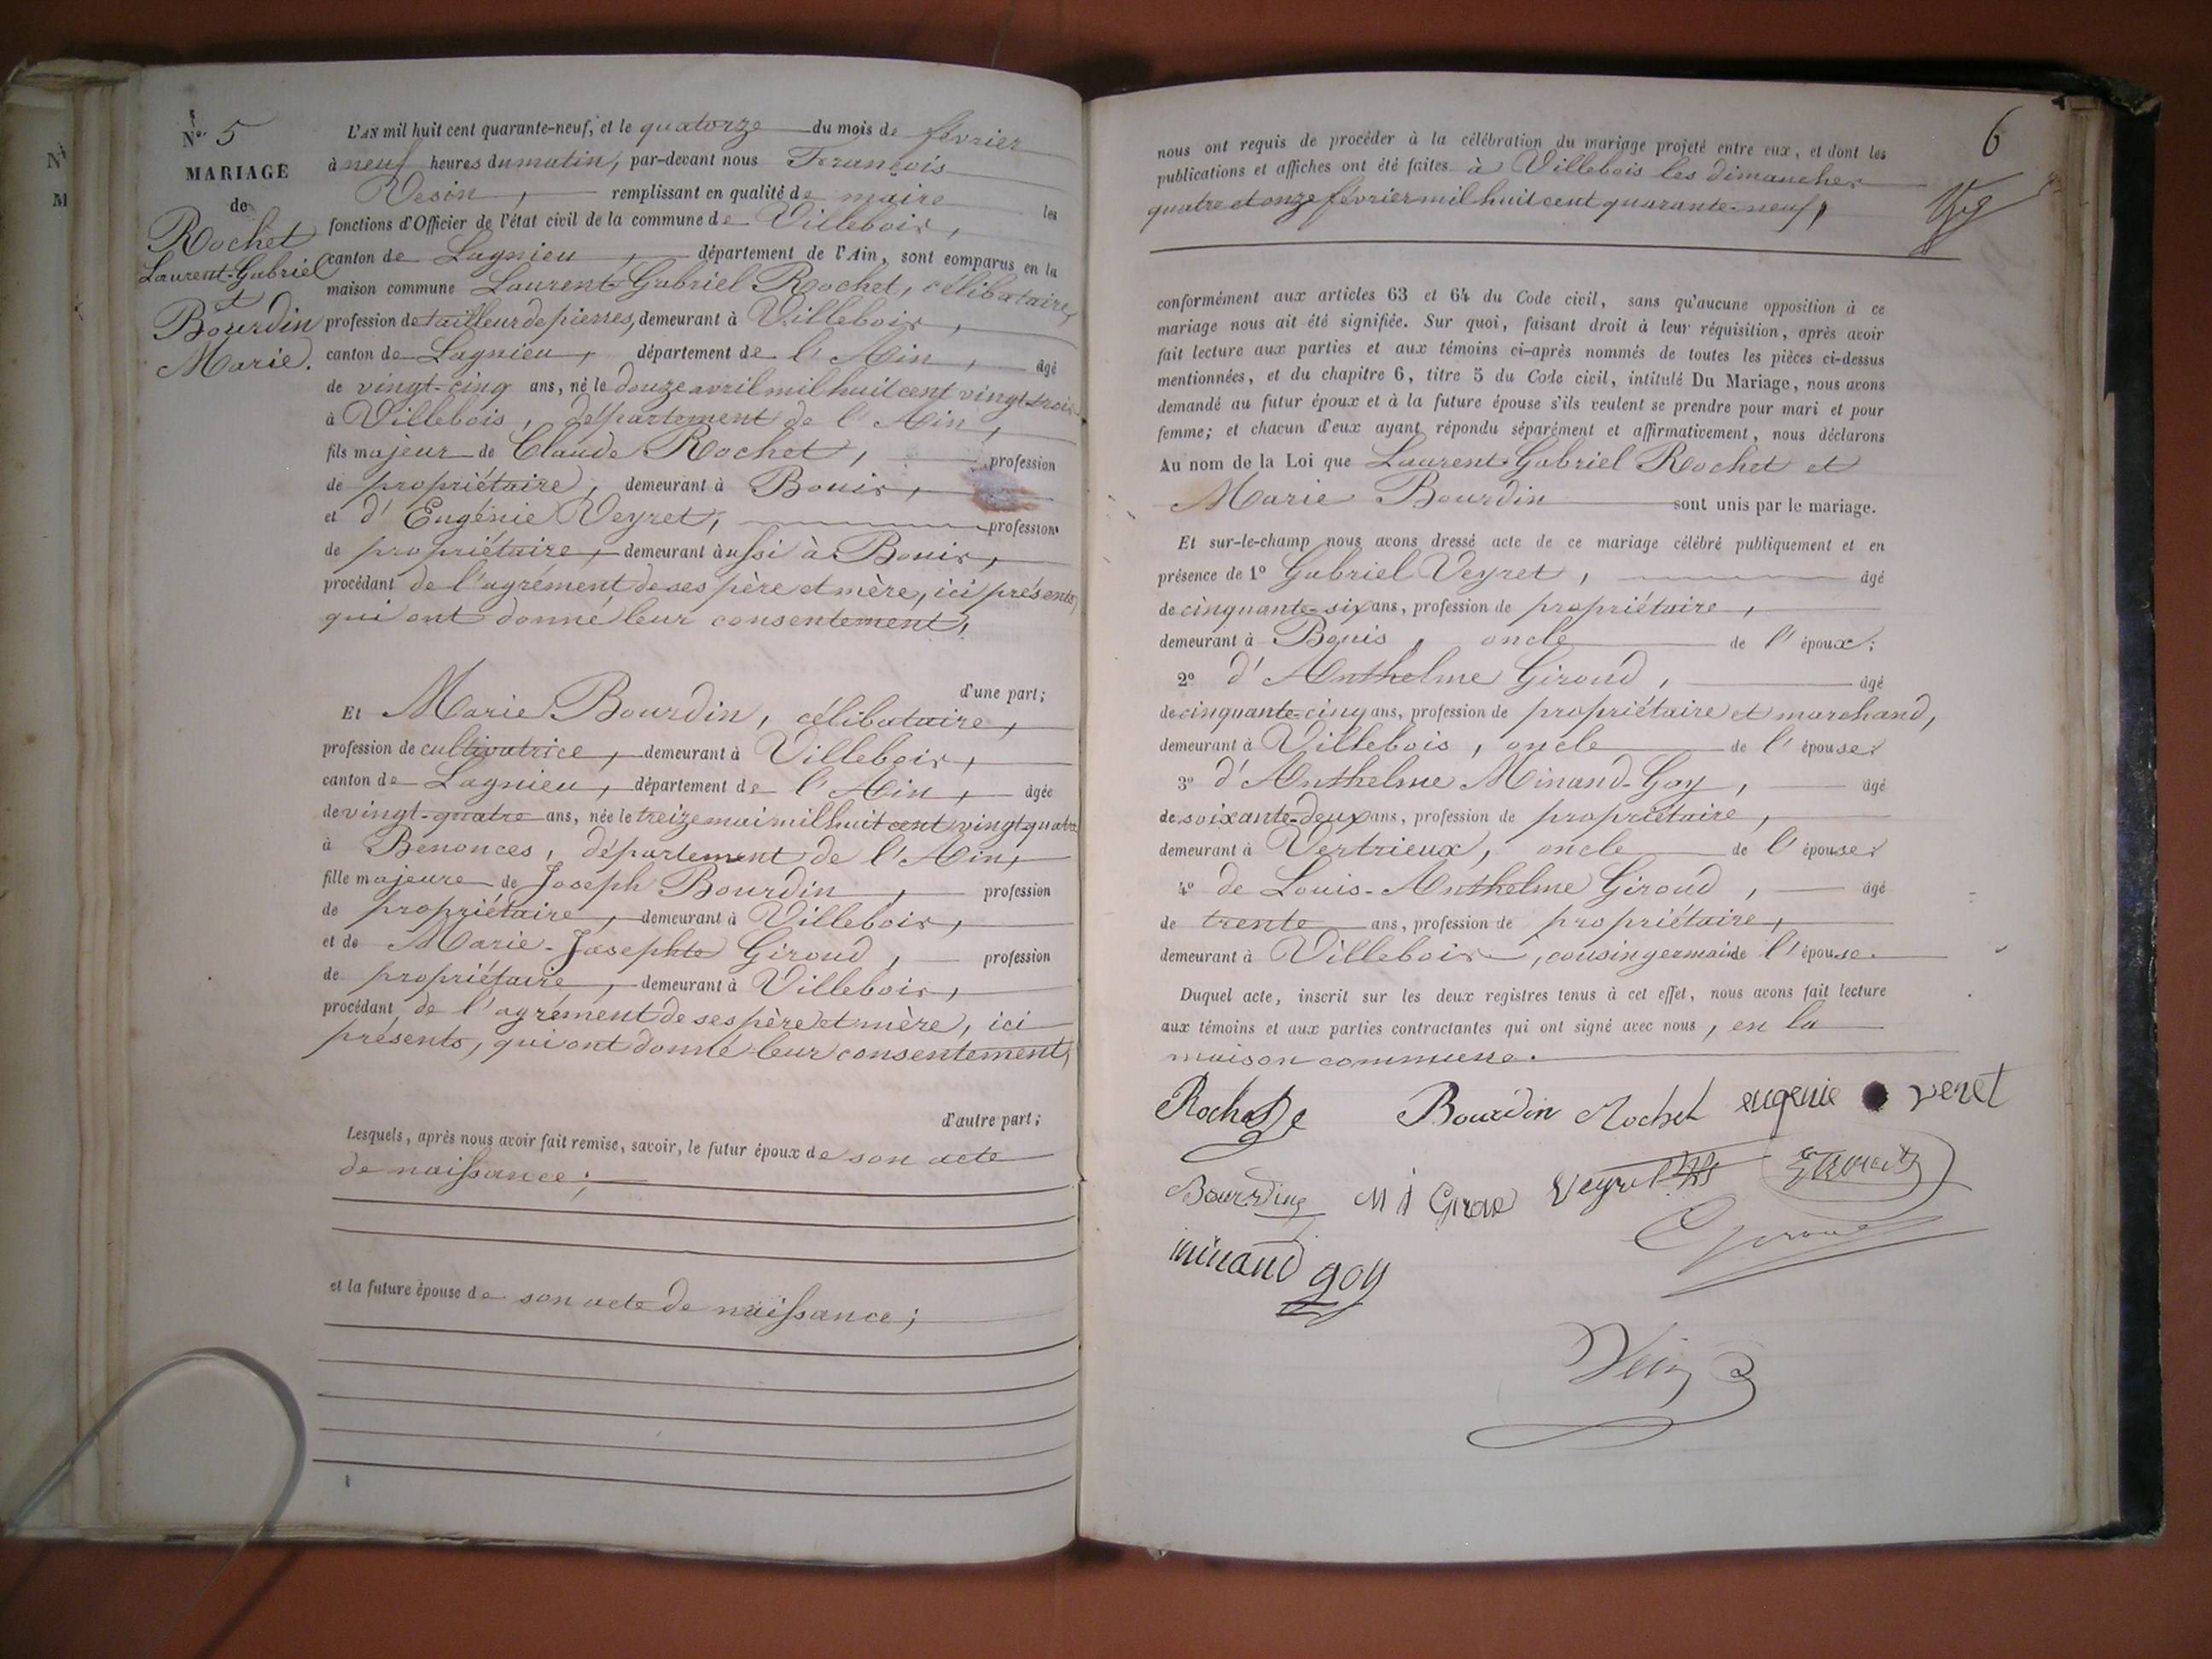 N° 5
MARIAGE
de
Rochet
Laurent-Gabriel
et
Bourdin
Marie.
L'AN mil huit cent quarante-neuf, et le quatorze du mois de février
à neuf heures du matin, par-devant nous François
Vesin, remplissant en qualité de maire les
fonctions d'Officier de l'état civil de la commune de Villebois,
canton de Lagnieu, département de l'Ain, sont comparus en la
maison commune Laurent-Gabriel Rochet, célibataire,
profession de tailleur de pierres, demeurant à Villebois,
canton de Lagnieu, département de l'Ain, âgé
de vingt-cinq ans, né le douze avril mil huit cent vingt-trois
à Villebois, département de l'Ain,
fils majeur de Claude Rochet, profession
de propriétaire, demeurant à Bouis,
et d'Eugénie Veyret, profession
de propriétaire, demeurant aussi à Bouis,
procédant de l'agrément de ses père et mère, ici présents,
qui ont donné leur consentement,
d'une part;
Et Marie Bourdin, célibataire,
profession de cultivatrice, demeurant à Villebois,
canton de Lagnieu, département de l'Ain, âgée
de vingt-quatre ans, née le treize mai mil huit cent vingt-quatre
à Benonces, département de l'Ain,
fille majeure de Joseph Bourdin, profession
de propriétaire, demeurant à Villebois,
et de Marie-Josephte Giroud, profession
de propriétaire, demeurant à Villebois,
procédant de l'agrément de ses père et mère, ici
présents, qui ont donné leur consentement,
d'autre part;
Lesquels, après nous avoir fait remise, savoir, le futur époux de son acte
de naissance;
et la future épouse de son acte de naissance;
6
nous ont requis de procéder à la célébration du mariage projeté entre eux, et dont les
publications et affiches ont été faites à Villebois les dimanches
quatre et onze février mil huit cent quarante-neuf,
conformément aux articles 63 et 64 du Code civil, sans qu'aucune opposition à ce
mariage nous ait été signifiée. Sur quoi, faisant droit à leur réquisition, après avoir
fait lecture aux parties et aux témoins ci-après nommés de toutes les pièces ci-dessus
mentionnées, et du chapitre 6, titre 5 du Code civil, intitulé Du Mariage, nous avons
demandé au futur époux et à la future épouse s'ils veulent se prendre pour mari et pour
femme; et chacun d'eux ayant répondu séparément et affirmativement, nous déclarons
Au nom de la Loi que Laurent-Gabriel Rochet et
Marie Bourdin sont unis par le mariage.
Et sur-le-champ nous avons dressé acte de ce mariage célébré publiquement et en
présence de 1° Gabriel Veyret, âgé
de cinquante-six ans, profession de propriétaire,
demeurant à Bouis, oncle de l'époux;
2° d'Anthelme Giroud, âgé
de cinquante-cinq ans, profession de propriétaire et marchand,
demeurant à Villebois, oncle de l'épouse;
3° d'Anthelme Minand-Goy, âgé
de soixante-deux ans, profession de propriétaire,
demeurant à Vertrieux, oncle de l'épouse;
4° de Louis-Anthelme Giroud, âgé
de trente ans, profession de propriétaire,
demeurant à Villebois, cousin germain de l'épouse.
Duquel acte, inscrit sur les deux registres tenus à cet effet, nous avons fait lecture
aux témoins et aux parties contractantes qui ont signé avec nous, en la
maison commune.
Bourdin Rochet eugenie veret
Veyret
minand goy